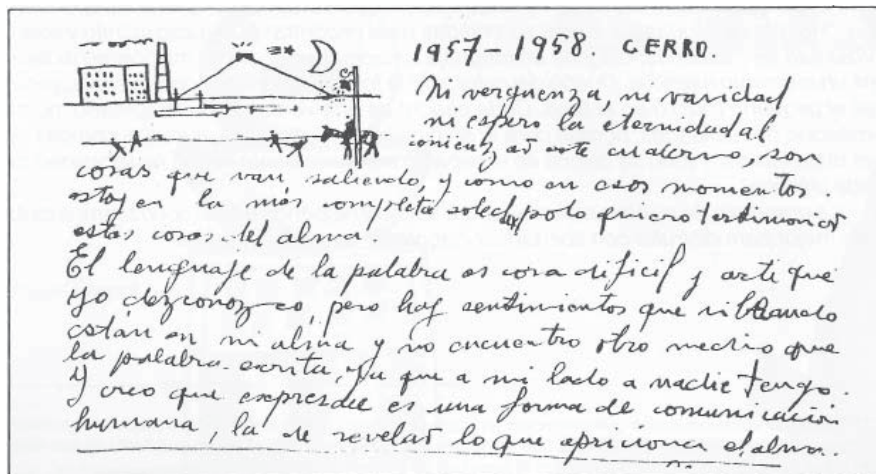 1957-1958. CERRO.
Ni verguenza, ni vanidad
ni espero la eternidad al
comienzo de este cuaderno, son
cosas que van saliendo, y como en esos momentos
estoy en la más completa soledad, solo quiero testimoniar
estas cosas del alma
El lenguaje de la palabra es cosa dificil y arte que
yo dezconozco, pero hay sentimientos que vibrando
están en mi alma y no encuentro otro medio que
la palabra escrita, ya que a mi lado a nadie tengo.
Y creo que es una forma de comunicación
humana, la de revelar lo que apriciona el alma.